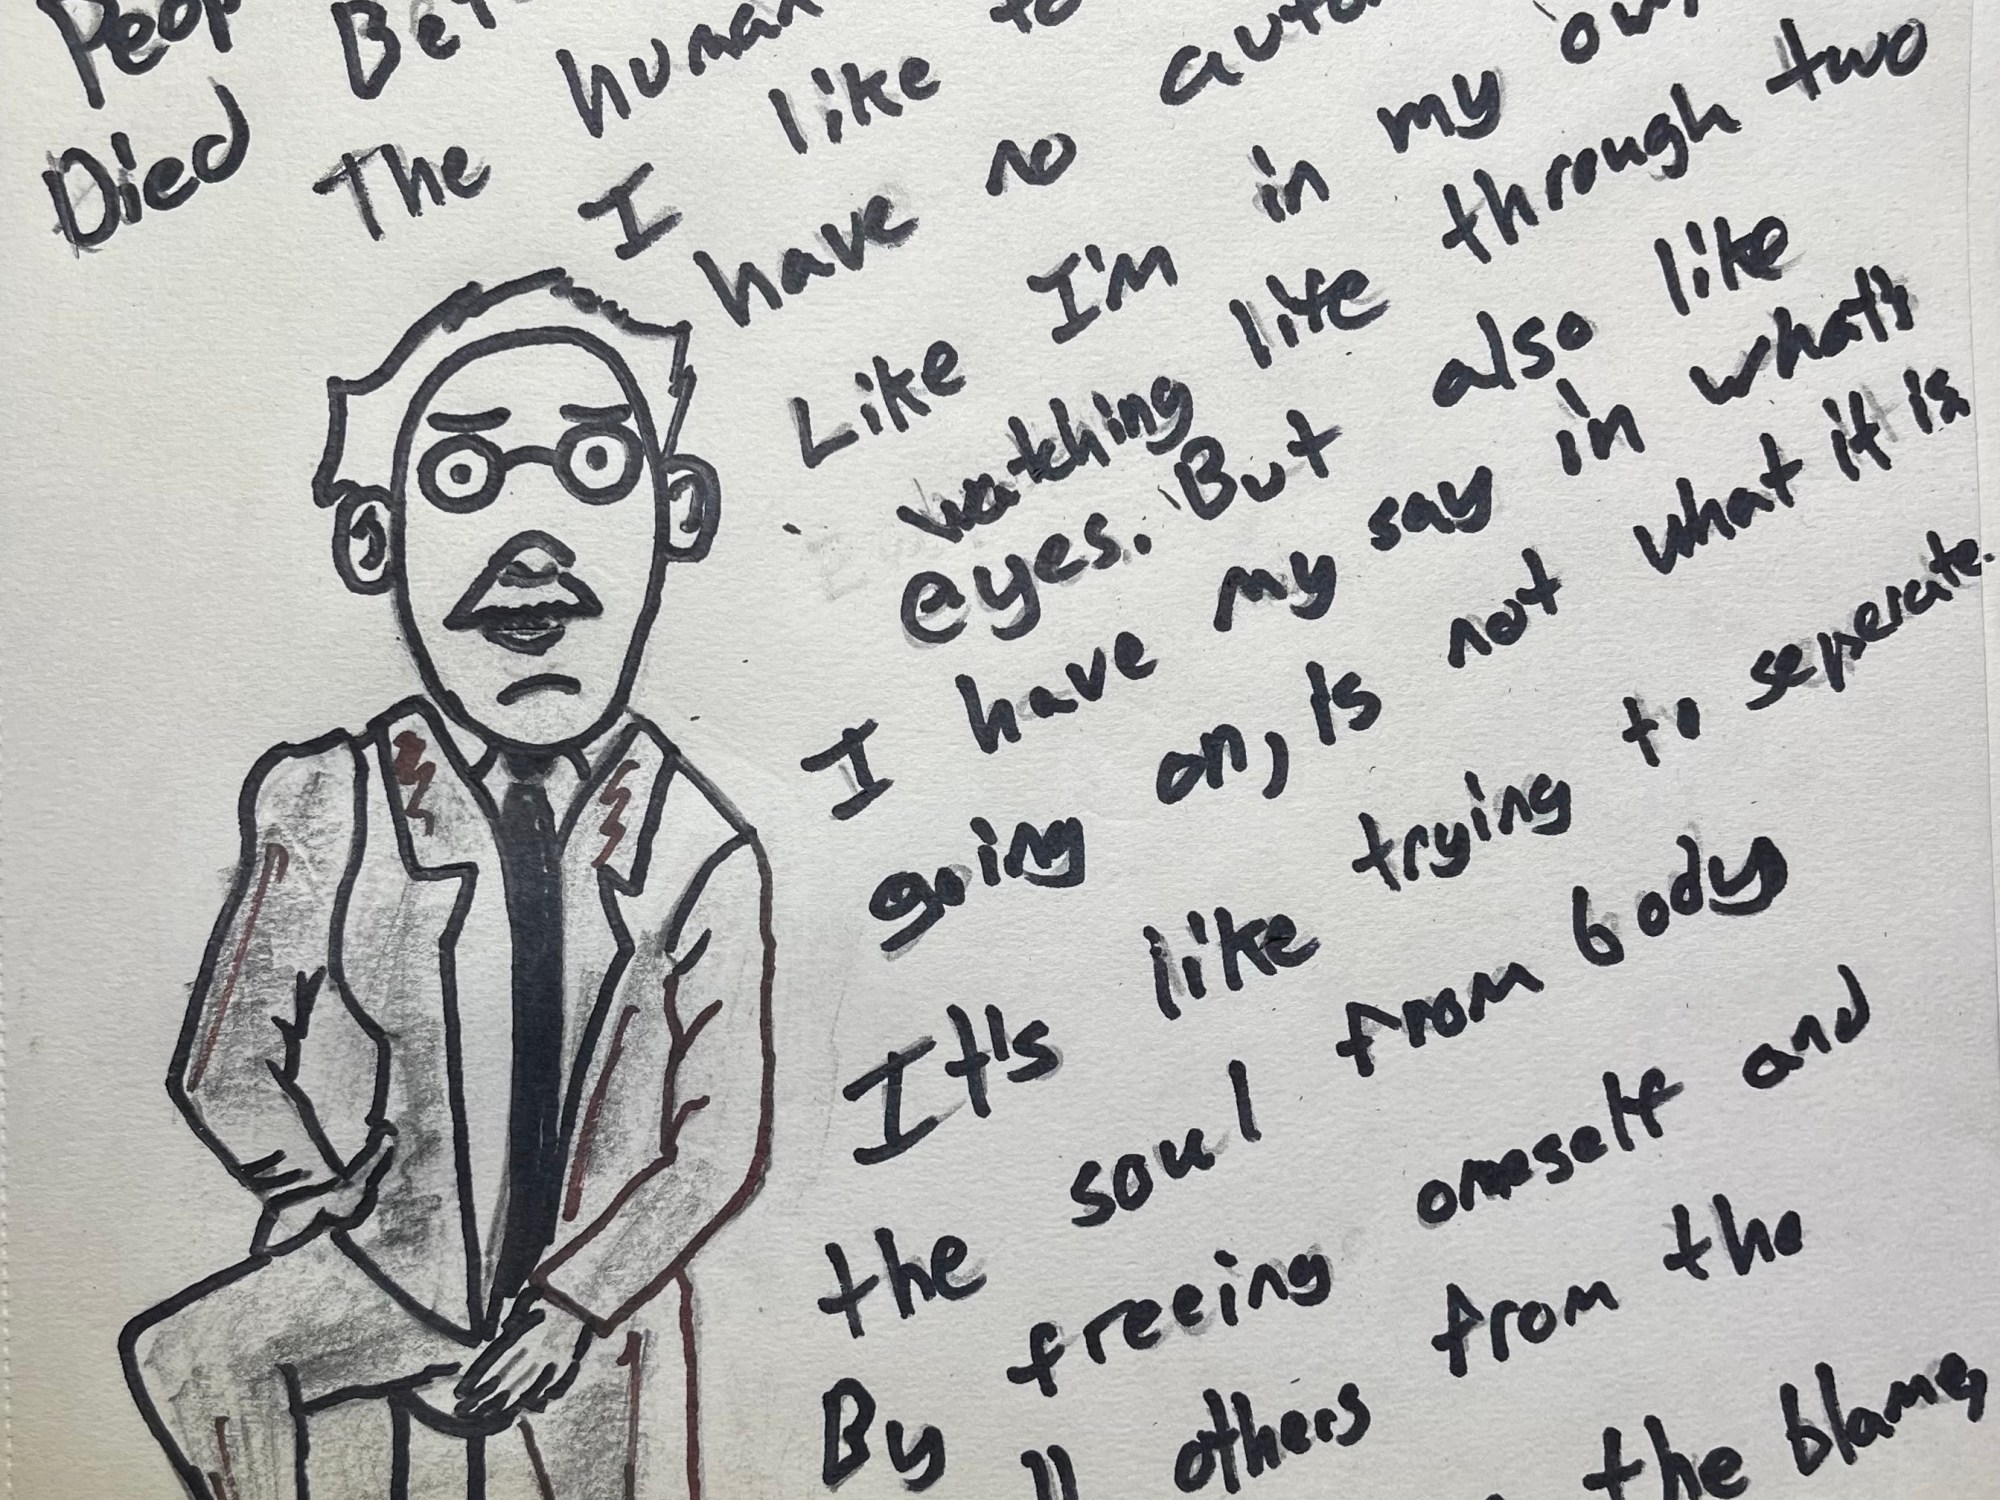 Died
The
I like to
have no
Like I'm in my own
watching like through two
eyes. But also like
I have my say in what's
going on, Is not what it is
It's like trying to seperate.
the soul from body
By freeing oneself and
others from the
the blame,